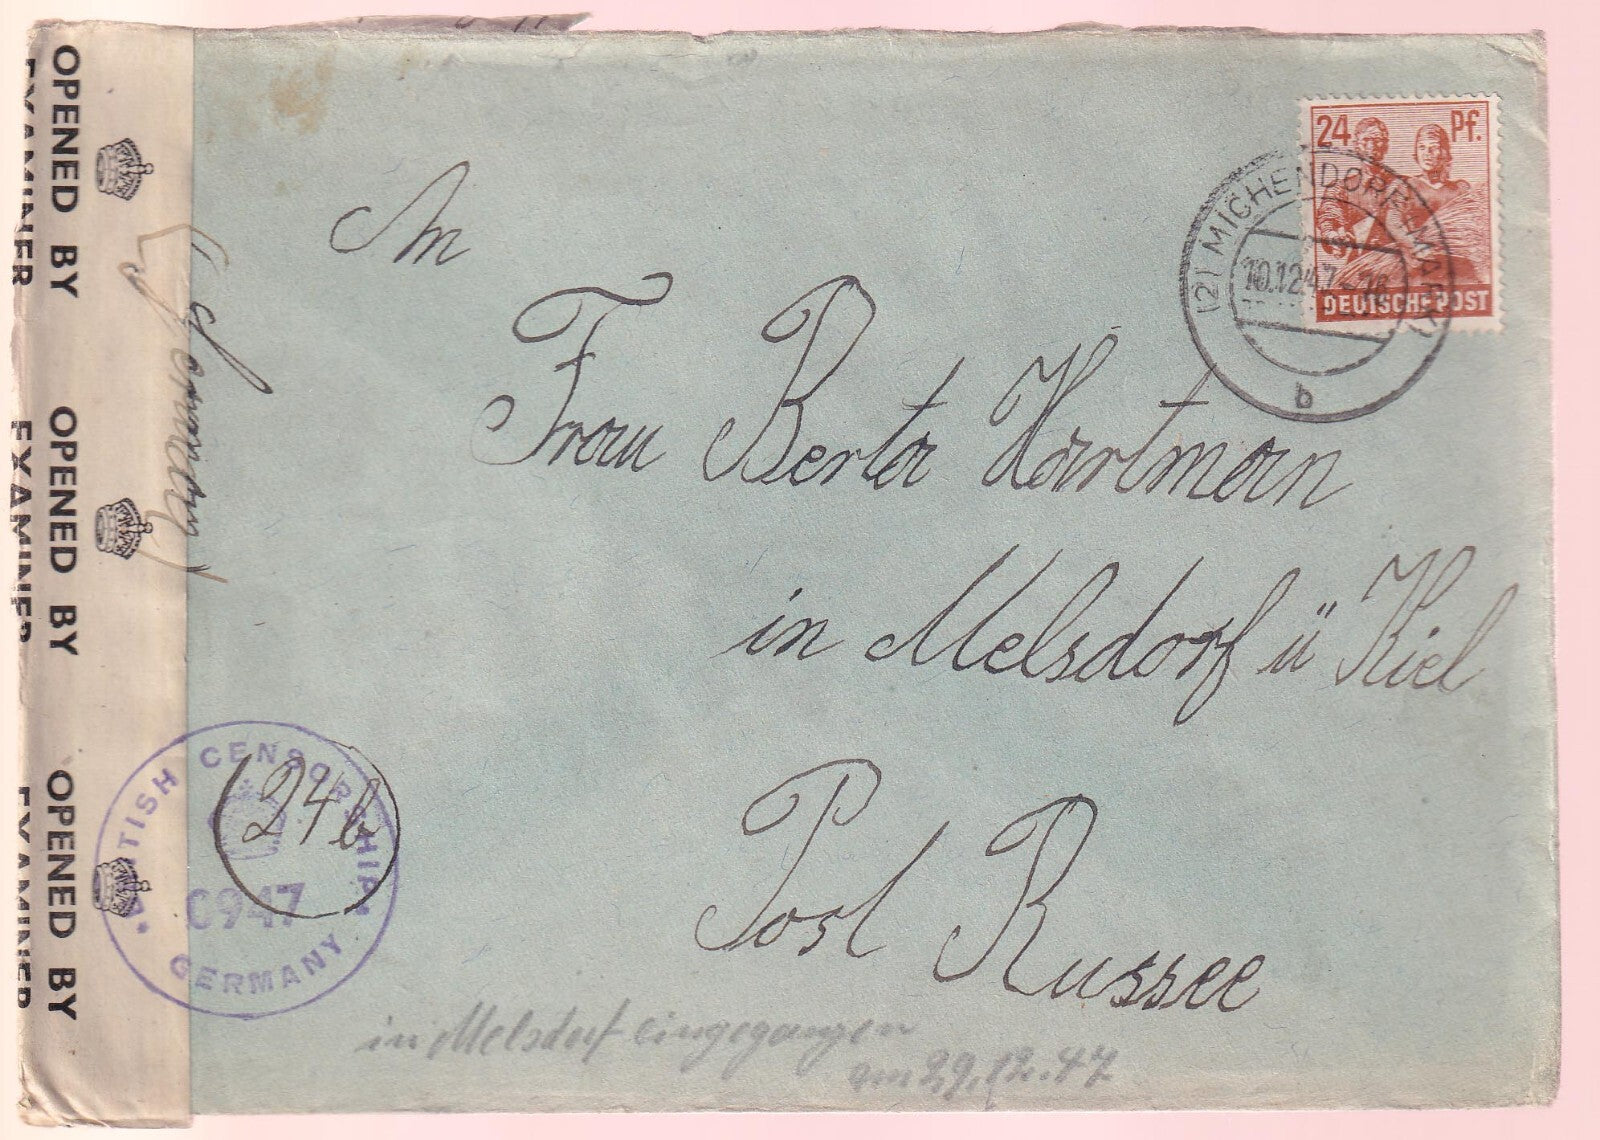 OPENED BY
EXAMINER
OPENED BY
EXAMINER
OPENED BY
EXAMINER
(Germany)
24 Pf.
DEUTSCHE POST
(2) MICHENDORF (MARK)
10.12.47-18
b
An
Frau Berta Hartman
in Melsdorf ü Kiel
Post Russee
BRITISH CENSORSHIP
0947
GERMANY
24b
in Melsdorf eingegangen
am 29.12.47